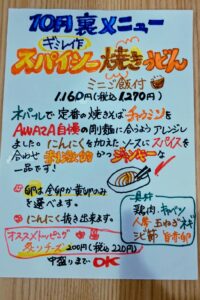 10月裏メニュー
ギミレイ作
スパイシー焼きうどん
ミニご飯付
1,160円(税込1,270円)
ネパールで定番の焼きそばチャウミンを
AWARA自慢の剛麺に合うようアレンジし
ました。にんにくを加えたソースにスパイスを
合わせ 刺激的かつジャンキーな
一品です!
卵は全卵か黄卵のみ
を選べます。
にんにく抜き出来ます。
オススメトッピング
ダルッチーズ 200円(税込220円)
中盛りまでOK
具材
鶏肉 キャベツ
人参 玉ねぎ ネギ